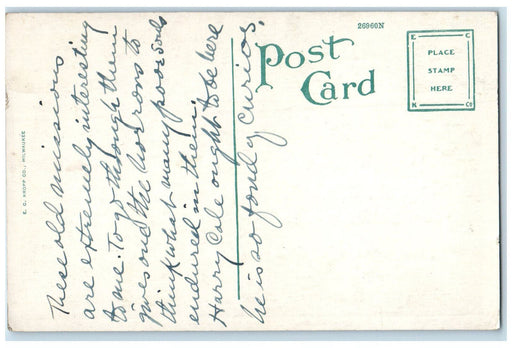 These old missions
are extremely interesting
to me. To go through them
gives one the horrors to
think what many poor souls
endured in them.
Harry Cale ought to be here
he is so fond of curios.
26960N
Post
Card
E C
PLACE
STAMP
HERE
K Co
E. C. KROPP CO., MILWAUKEE